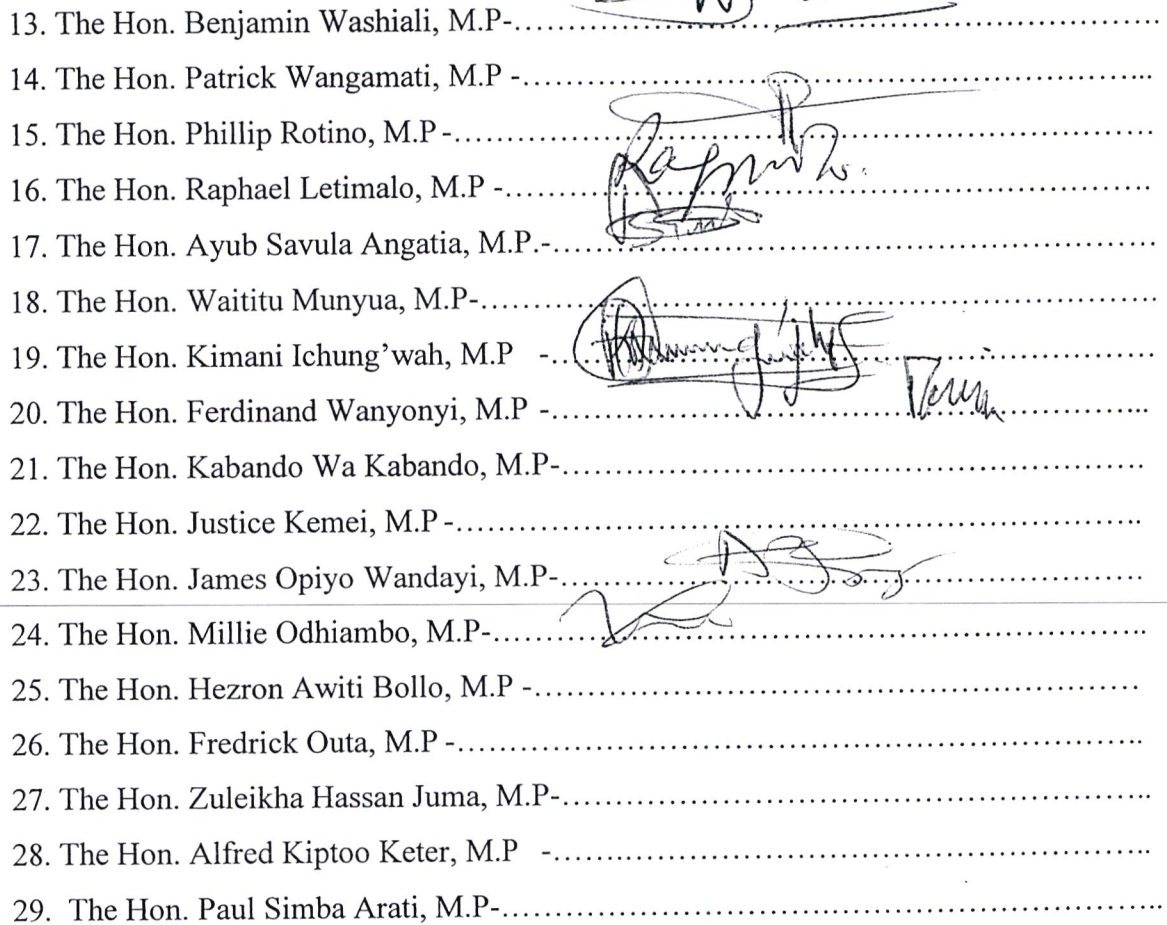 13. The Hon. Benjamin Washiali, M.P-
14. The Hon. Patrick Wangamati, M.P -
15. The Hon. Phillip Rotino, M.P -
16. The Hon. Raphael Letimalo, M.P -
17. The Hon. Ayub Savula Angatia, M.P.-
18. The Hon. Waititu Munyua, M.P-
19. The Hon. Kimani Ichung’wah, M.P -
20. The Hon. Ferdinand Wanyonyi, M.P -
21. The Hon. Kabando Wa Kabando, M.P-
22. The Hon. Justice Kemei, M.P -
23. The Hon. James Opiyo Wandayi, M.P-
24. The Hon. Millie Odhiambo, M.P-
25. The Hon. Hezron Awiti Bollo, M.P -
26. The Hon. Fredrick Outa, M.P -
27. The Hon. Zuleikha Hassan Juma, M.P-
28. The Hon. Alfred Kiptoo Keter, M.P -
29. The Hon. Paul Simba Arati, M.P-